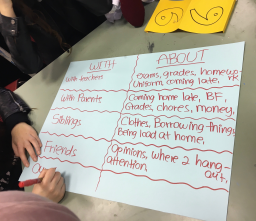 WITH
ABOUT
with teachers
Exams, grades, homework
Uniform, coming late,
With Parents
Coming home late, BF,
Grades, chores, money,
Siblings
Clothes, Borrowing things
Being load at home,
Friends
Opinions, where 2 hang-
out,
attention